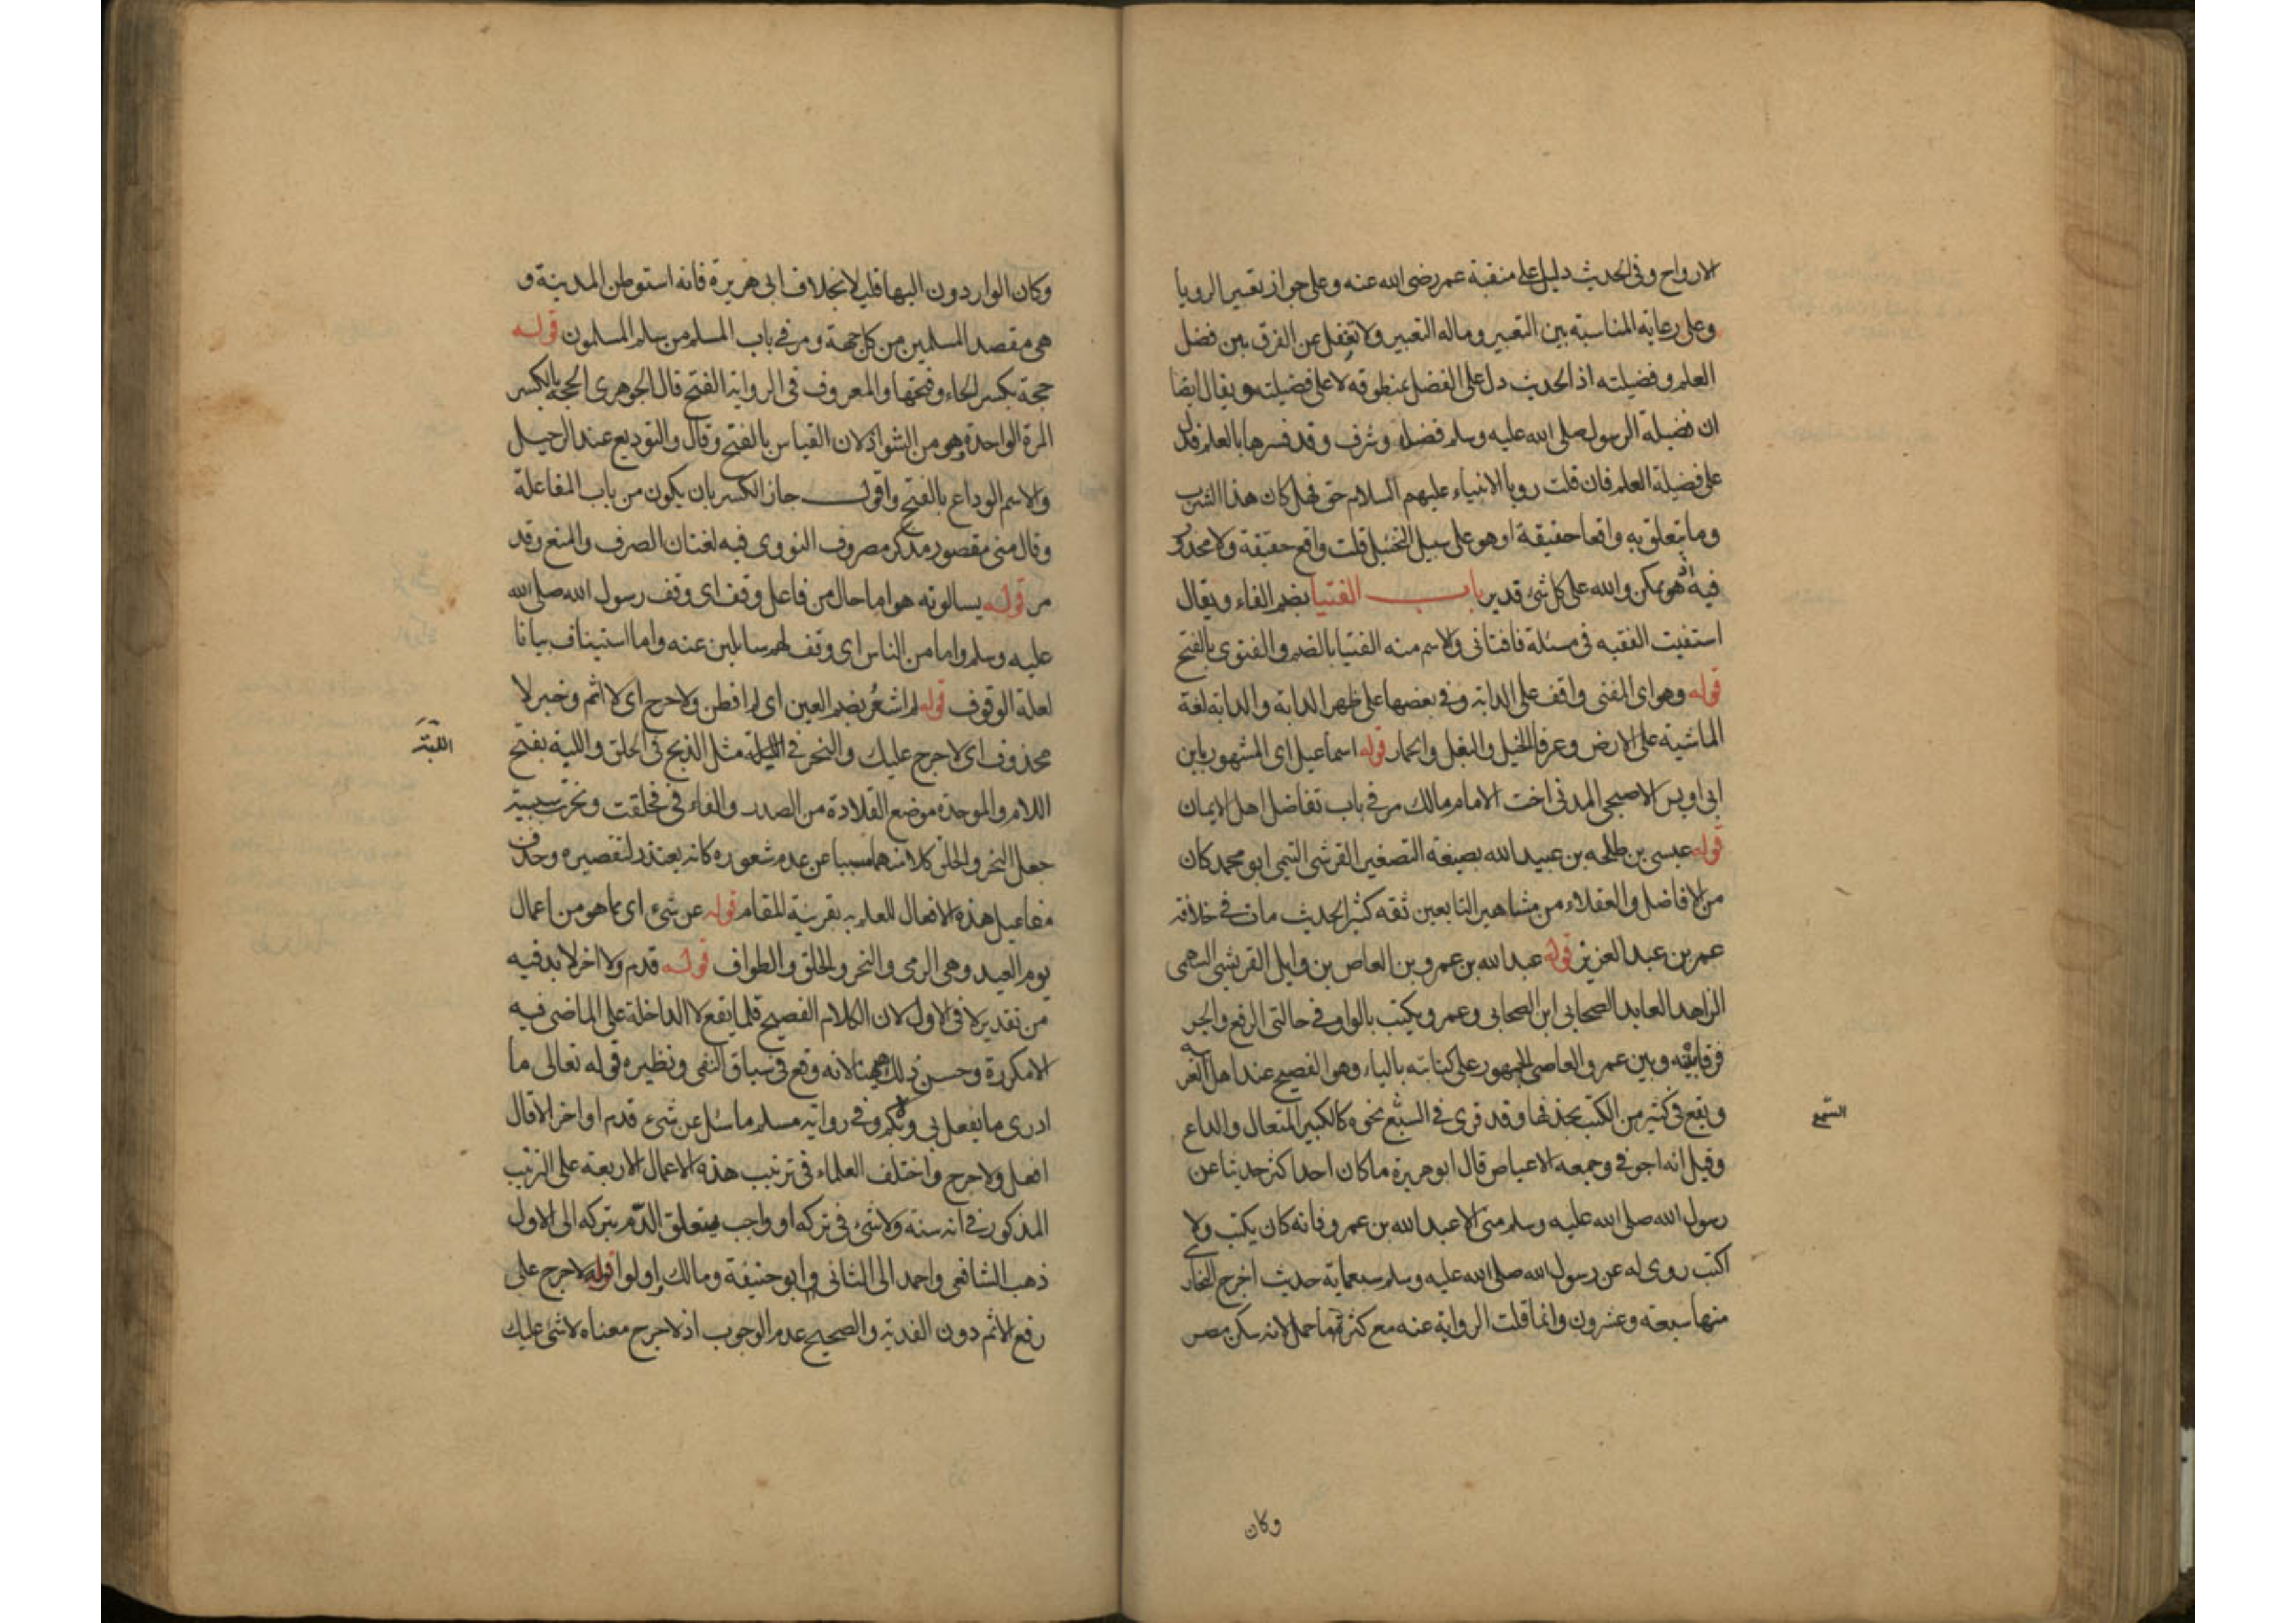 الارواح وفى الحديث دليل على منقبة عمر رضى الله عنه وعلى جواز تعبير الرويا
وعلى رعاية المناسبة بين التعبير وماله التعبير ولا تغفل عن الفرق بين فضل
العلم وفضيلته اذ الحديث دل على الفضل بمنطوقه لا على فضيلته ويقال ايضا
ان فضيلة الرسول صلى الله عليه وسلم فضيلة وشرف وقد فسرها بالعلم فدل
على فضيلة العلم فان قلت رويا الانبياء عليهم السلام حق فهل كان هذا الشرب
وما يتعلق به واقعا حقيقة او هو على سبيل التخييل قلت واقع حقيقة ولا محذور
فيه اذ هو ممكن والله على كل شئ قدير باب الفتيا بضم الفاء ويقال
استفيت الفقيه فى مسئلة فافتانى والاسم منه الفتيا بالضم والفتوى بالفتح
قوله وهو اى المفتى واقف على الدابة وفى بعضها على ظهر الدابة والدابة لغة
الماشية على الارض وعرفا الخيل والبغل والحمار قوله اسماعيل اى المشهور بابن
ابى اويس الاصبحى المدنى اخت الامام مالك مر فى باب تفاضل اهل الايمان
قوله عيسى بن طلحه بن عبيد الله بصيغة التصغير القرشى التيمى ابو محمد كان
من الافاضل والعقلاء من مشاهير التابعين ثقه كثير الحديث مات فى خلافة
عمر بن عبد العزيز قوله عبد الله بن عمرو بن العاص بن وايل القريشى السهمى
الزاهد العابد الصحابى ابن الصحابى وعمرو يكتب بالواو فى حالتى الرفع والجر
فرقا بينه وبين عمر والعاصى الجمهور على كتابته بالياء وهو الفصيح عند اهل العربية
ويقع فى كثير من الكتب بحذفها وقد قرى فى السبع نحوه كالكبير المتعال والداع
السبع
وقيل انه اجوفى وجمعه الاعياص قال ابو هريرة ما كان احد اكثر حديثا عن
رسول الله صلى الله عليه وسلم منى الا عبد الله بن عمرو فانه كان يكتب ولا
اكتب روى له عن رسول الله صلى الله عليه وسلم سبعماية حديث اخرج البخارى
منها سبعة وعشرون وانما قلت الرواية عنه مع كثرة ما حمل لانه سكن مصر
وكان
وكان الواردون اليها قليلا بخلاف ابى هريرة فانه استوطن المدينة و
هى مقصد المسلمين من كل جهة ومر فى باب المسلم من سلم المسلمون قوله
حجة بكسر الحاء وفتحها والمعروف فى الرواية الفتح قال الجوهرى الحجة بالكسر
المرة الواحدة وهو من الشواذ لان القياس بالفتح وقال والتوديع عند الرحيل
والاسم الوداع بالفتح واقول جاز الكسر بان يكون من باب المفاعلة
وقال منى مقصور مذكر مصروف النووى فيه لغتان الصرف والمنع وقد
مر قوله يسالونه هو اما حال من فاعل وقف اى وقف رسول الله صلى الله
عليه وسلم واما من الناس اى وقف لهم سايلين عنه واما استيناف بيانا
لعلة الوقوف قوله لم اشعُر بضم العين اى لم افطن ولا حرج اى لا اثم وخبر لا
محذوف اى لا حرج عليك والنحر فى اللبة مثل الذبح فى الحلق واللبة بفتح
اللبة
اللام والموحدة موضع القلادة من الصدر والفاء فى فحلقت ونحرت سببية
جعل النحر والحلق كلا منهما مسببا عن عدم شعوره كانه يعتذر لتقصيره وحذف
مفاعيل هذه الافعال للعلم به بقرينة المقام قوله عن شىء اى مما هو من اعمال
يوم العيد وهى الرمى والنحر والحلق والطواف قوله قدم ولا اخر لا بد فيه
من تقدير لا فى الاول لان الكلام الفصيح قلما يقع لا الداخلة على الماضى فيه
الا مكررة وحسن ذلك ههنا لانه وقع فى سياق النفى ونظيره قوله تعالى ما
ادرى ما يفعل بى ولا بكم وفى رواية مسلم ما سئل عن شىء قدم او اخر الا قال
افعل ولا حرج واختلف العلماء فى ترتيب هذه الاعمال الاربعة على الترتيب
المذكور فى انه سنة ولا شىء فى تركه او واجب يتعلق الدّم بتركه الى الاول
ذهب الشافعى واحمد الى الثانى وابو حنيفة ومالك واولوا قوله لا حرج على
رفع الاثم دون الفدية والصحيح عدم الوجوب اذ لا حرج معناه لا شئ عليك